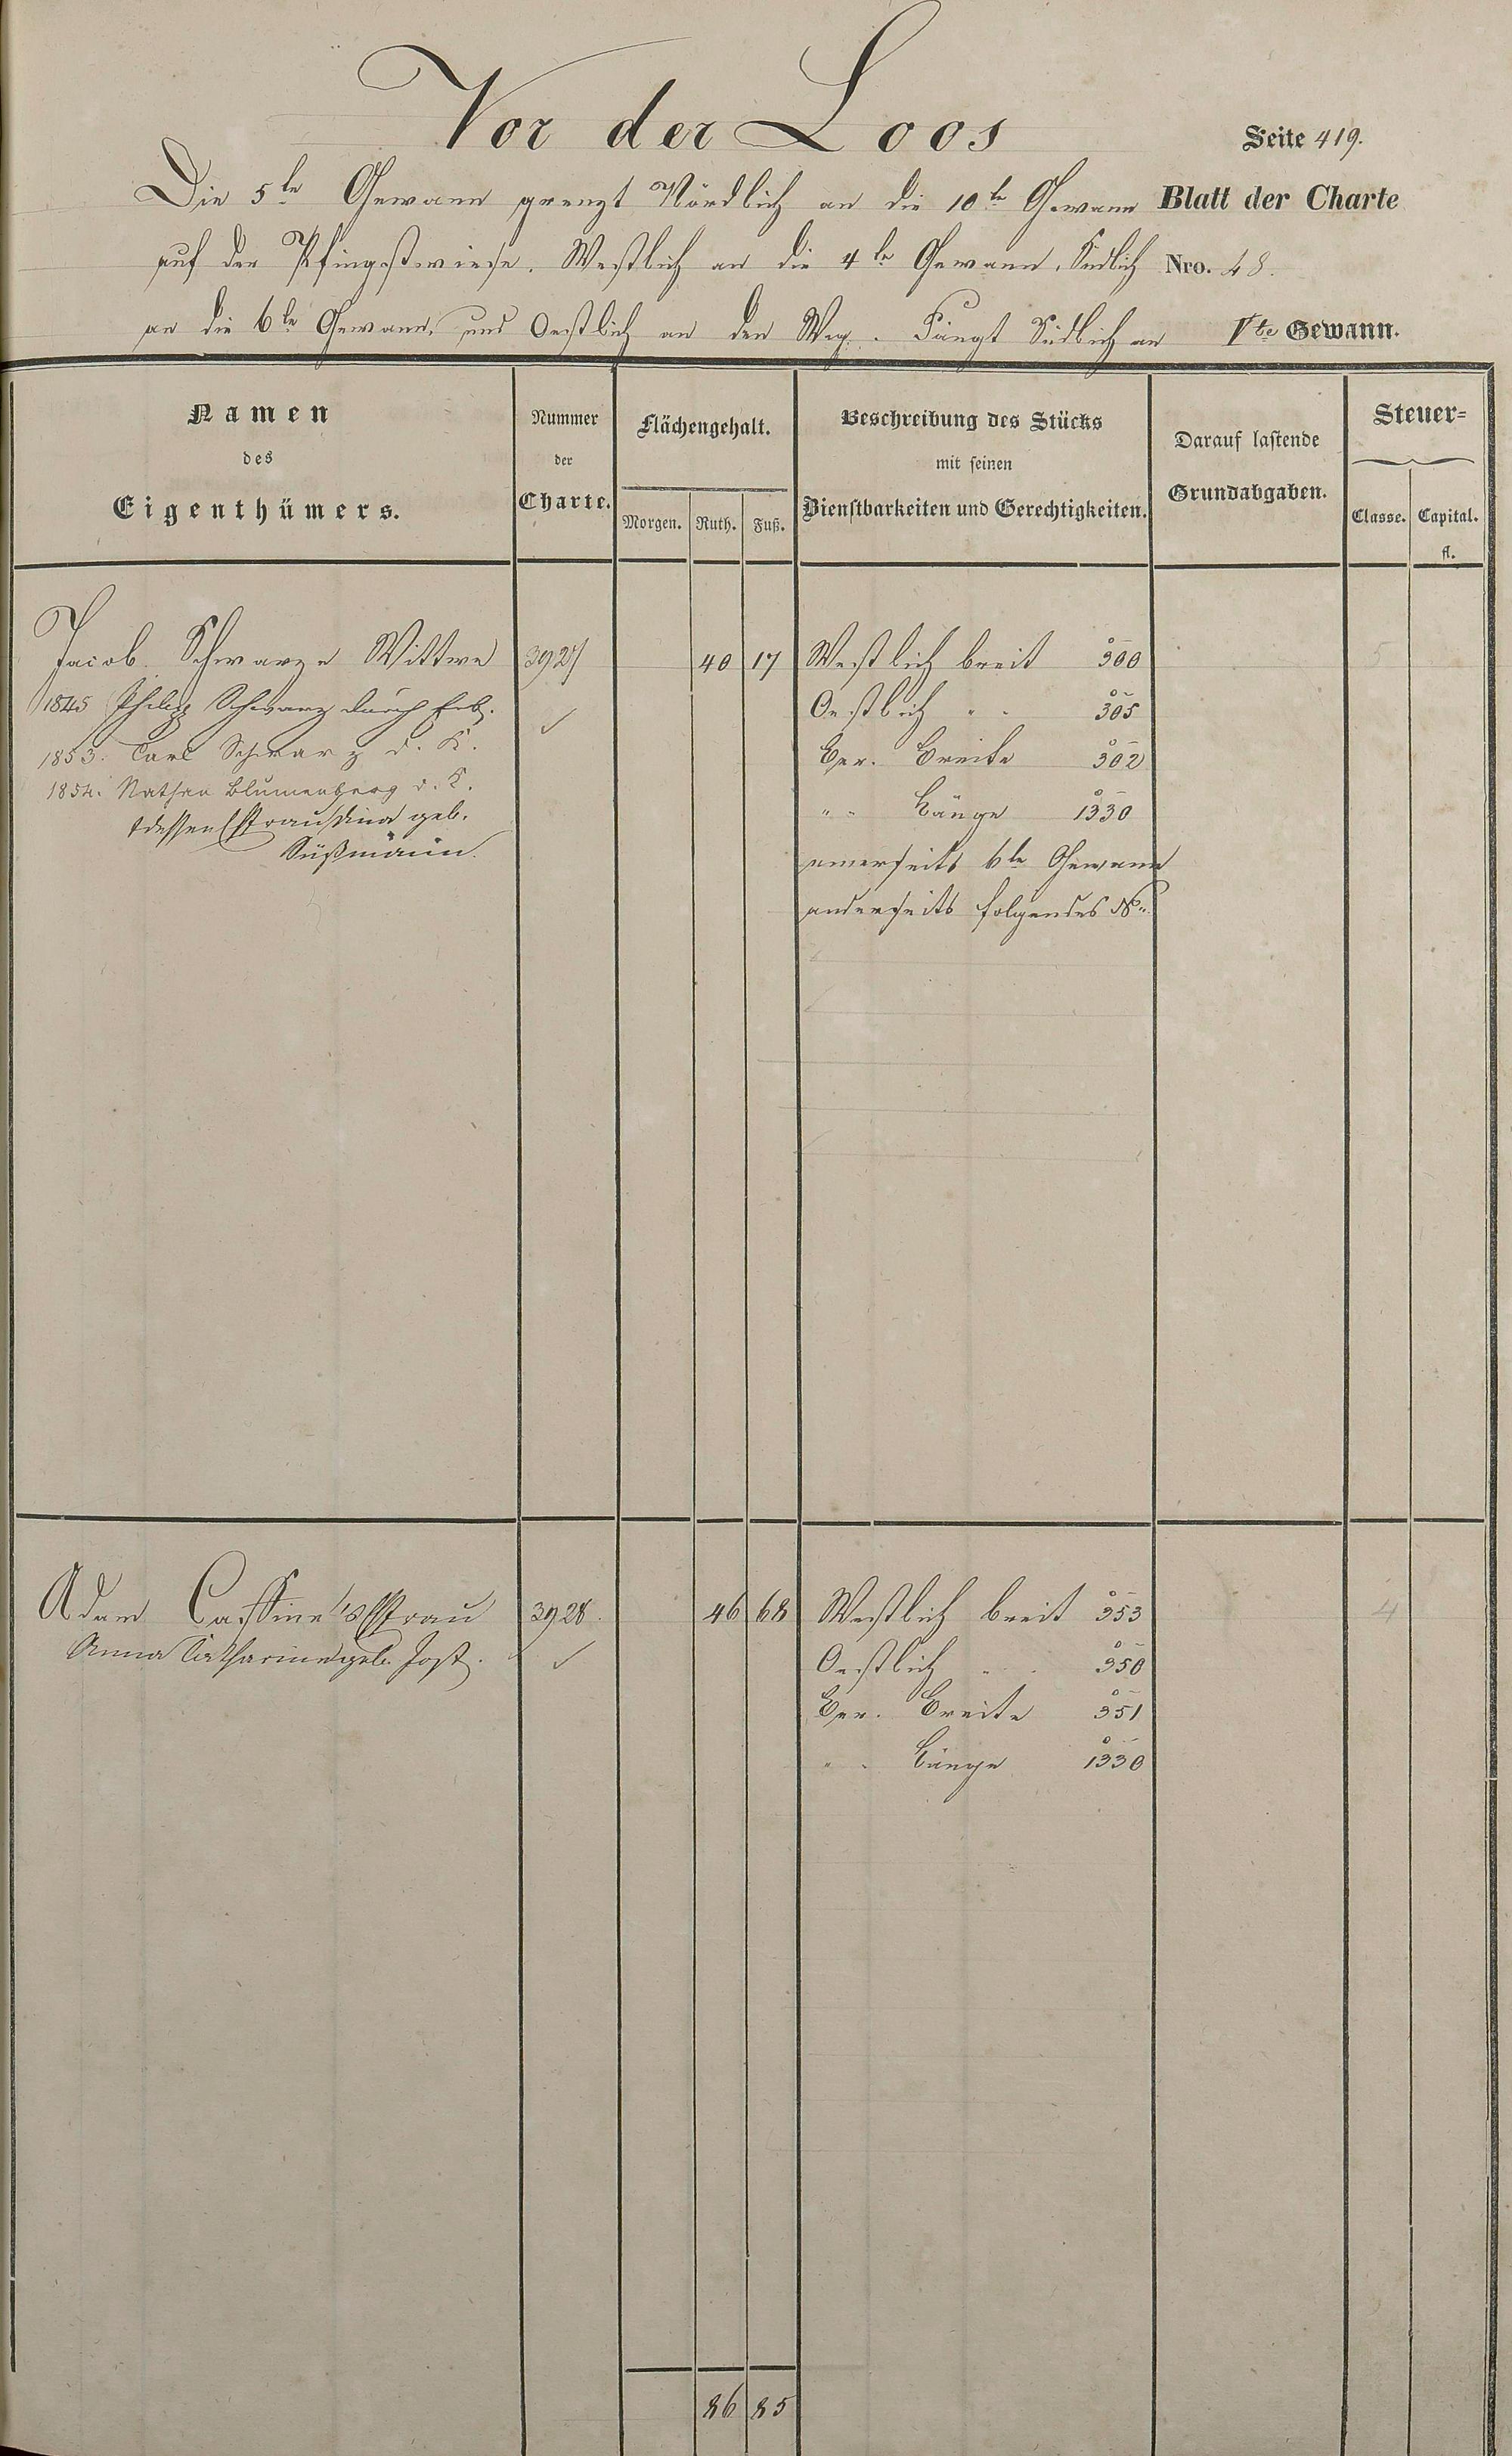 Vor der Loos
Seite 419.
Die 5te Gewann grenzt Nördlich an die 10te Gewann
Blatt der Charte
auf der Pfingstwiese, Westlich an die 4te Gewann, Südlich
Nro. 48.
an die 6te Gewann, und Oestlich an den Weg. Fängt Südlich an
Vte Gewann.
Namen
des
Eigenthümers.
Nummer
der
Charte.
Flächengehalt.
Morgen. Ruth. Fuß.
Beschreibung des Stücks
mit seinen
Dienstbarkeiten und Gerechtigkeiten.
Darauf lastende
Grundabgaben.
Steuer=
Classe. Capital.
fl.
Jacob Schwarze Wittwe 3927 40 17 Westlich breit 300 5
1845 Philipp Schwarz durch Erb. Oestlich " " 305
1853. Carl Schwarz d. K. Ber. Breite 302
1854. Nathan Blumenberg d. K. " " Länge 1330
geb.
Süßmann.
einerseits 6te Gewann
anderseits folgendes No.
Adam Cassine's Efrau 3928. 46 68 Westlich breit 353 4
Anna Catharina geb. Jost. Oestlich " " 350
Ber. Breite 351
" " Länge 1330
86 85